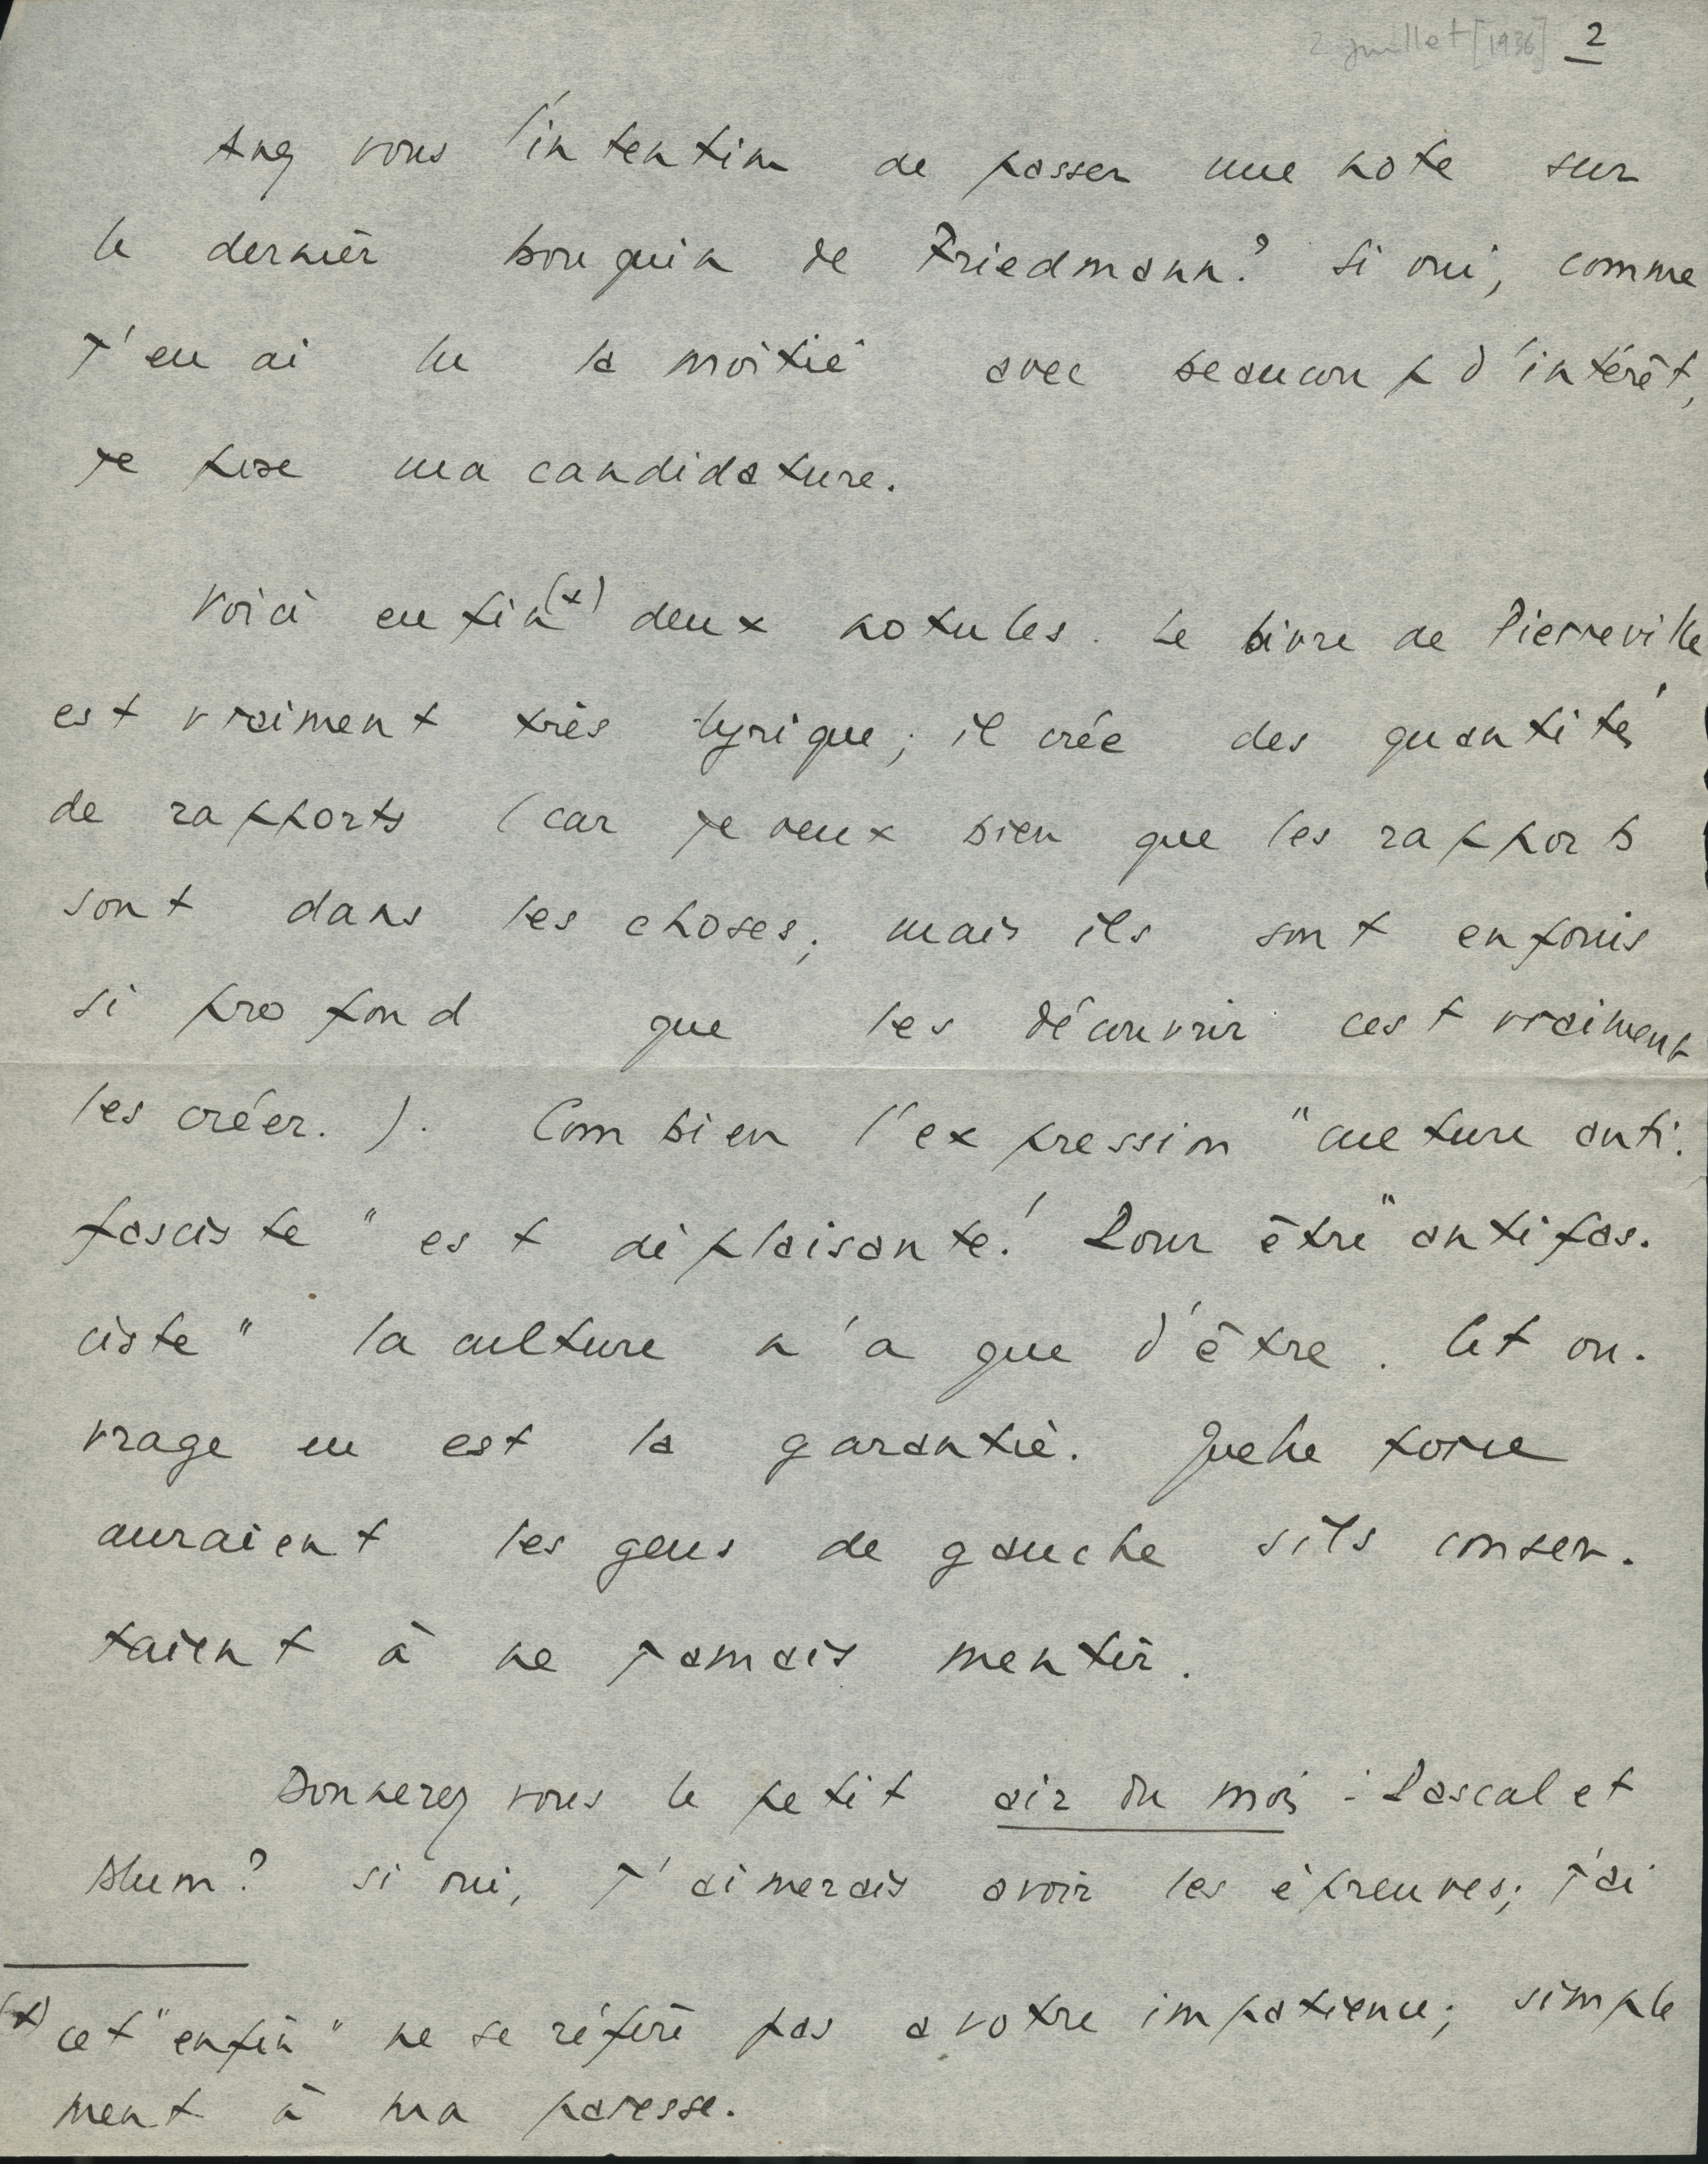 2 juillet [1936] 2
Avez vous l'intention de passer une note sur
le dernier bouquin de Friedmann? Si oui, comme
j'en ai lu la moitié avec beaucoup d'intérêt,
je pose ma candidature.
Voici enfin (x) deux notules. Le livre de Pierreville
est vraiment très lyrique; il crée des quantités
de rapports (car je veux bien que les rapports
sont dans les choses; mais ils sont enfouis
si profond que les découvrir c'est vraiment
les créer.). Combien l'expression "culture anti-
fasciste" est déplaisante! Pour être "antifas-
ciste" la culture n'a que d'être. Cet ou-
vrage en est la garantie. Quelle force
auraient les gens de gauche s'ils consen-
taient à ne jamais mentir.
Donnerez vous le petit air du mois : Pascal et
Blum? Si oui, j'aimerais avoir les épreuves; j'ai
(x) cet "enfin" ne se réfère pas a votre impatience; simple
ment à ma paresse.